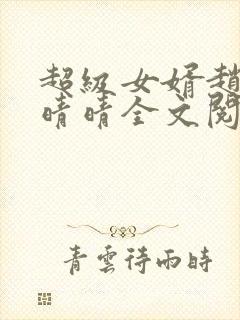 超級女婿趙
晴晴全文閱
青雲待雨時